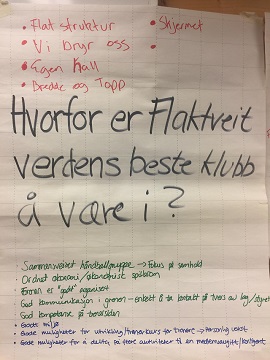 • Flat struktur
• Vi bryr oss
• Egen hall
• Bredde og Topp
• Skjermet
•
Hvorfor er Flaktveit
verdens beste klubb
å være i?
• Sammensveiset håndballgruppe → Fokus på samhold
• Ordnet økonomi /
• Formen er "godt" organisert
• God kommunikasjon i grenen - enkelt å ta kontakt på tvers av lag/styret
• God kompetanse på trenersiden
• Godt miljø
• Gode muligheter for utvikling/trenerkurs for trenere → Personlig vekst
• Gode muligheter for å delta på flere aktiviteter til en medlemsavgift/kontigent